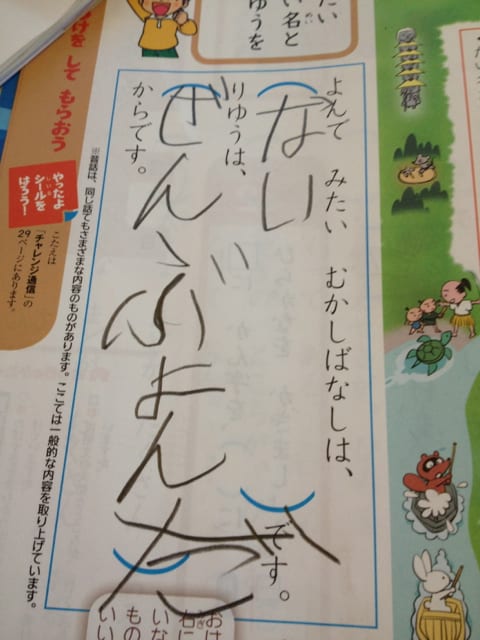 たい
い名と
ゆうを
よんで みたい むかしばなしは、
(ない)です。
りゆうは、
(ぜんぶよんだ)
からです。
※昔話は、同じ話でもさまざまな内容のものがあります。ここでは一般的な内容を取り上げています。
つけを して もらおう
やったよ
シールを
はろう！
こたえは
「チャレンジ通信」の
29ページにあります。
右に
いな
もの
いい